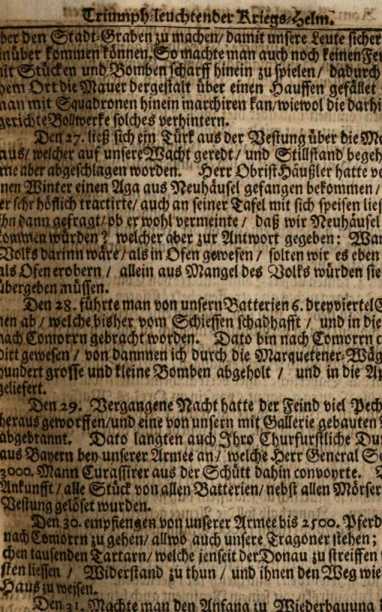 Triumph-leuchtender Kriegs-Helm.
ber den Stadt-Graben zu machen/ damit unsere Leute sicher
inüber kommen können. So machte man auch noch keinen Fe
it Stücken und Bomben scharff hinein zu spielen/ dadurch
em Ort die Mauer dergestalt über einen Hauffen gefället
an mit Squadronen hinein marchiren kan/ wiewol die darhi
gerichte Bollwerke solches verhintern.
Den 27. ließ sich ein Türk aus der Vestung über die Me
aus/ welcher auf unsere Wacht geredt/ und Stillstand begeh
me aber abgeschlagen worden. Herr Obrist Häußler hatte vo
nen Winter einen Aga aus Neuhäusel gefangen bekommen/
er sehr höflich tractirte/ auch an seiner Tafel mit sich speisen ließ
ihn dann gefragt/ ob er wohl vermeinte/ daß wir Neuhäusel
kommen würden? welcher aber zur Antwort gegeben: Wa
Volks darinn wäre/ als in Ofen gewesen/ solten wir es eben
als Ofen erobern/ allein aus Mangel des Volks würden sie
übergeben müssen.
Den 28. führte man von unsern Batterien 6. dreyviertel C
nen ab/ welche bisher vom Schiessen schadhafft/ und in die
nach Comorrn gebracht worden. Dato bin nach Comorrn c
dirt gewesen/ von dannnen ich durch die Marquetener-Wäg
hundert grosse und kleine Bomben abgeholt/ und in die A
geliefert.
Den 29. Vergangene Nacht hatte der Feind viel Pech
heraus geworffen/ und eine von unsern mit Gallerie gebauten
abgebrannt. Dato langten auch Ihro Churfürstliche Du
aus Bayern bey unserer Armee an/ welche Herr General S
3000. Mann Curassirer aus der Schütt dahin convoyrte.
Ankunfft/ alle Stück von allen Batterien/ nebst allen Mörser
Vestung gelöset wurden.
Den 30. empfiengen von unserer Armee bis 2500. Pferd
nach Comorrn zu gehen/ allwo auch unsere Tragoner stehen;
chen tausenden Tartarn/ welche jenseit der Donau zu streiffen
sten liessen/ Widerstand zu thun/ und ihnen den Weg wie
Haus zu weisen.
Den 31. Machte man den Anfang zu Wiederbauung